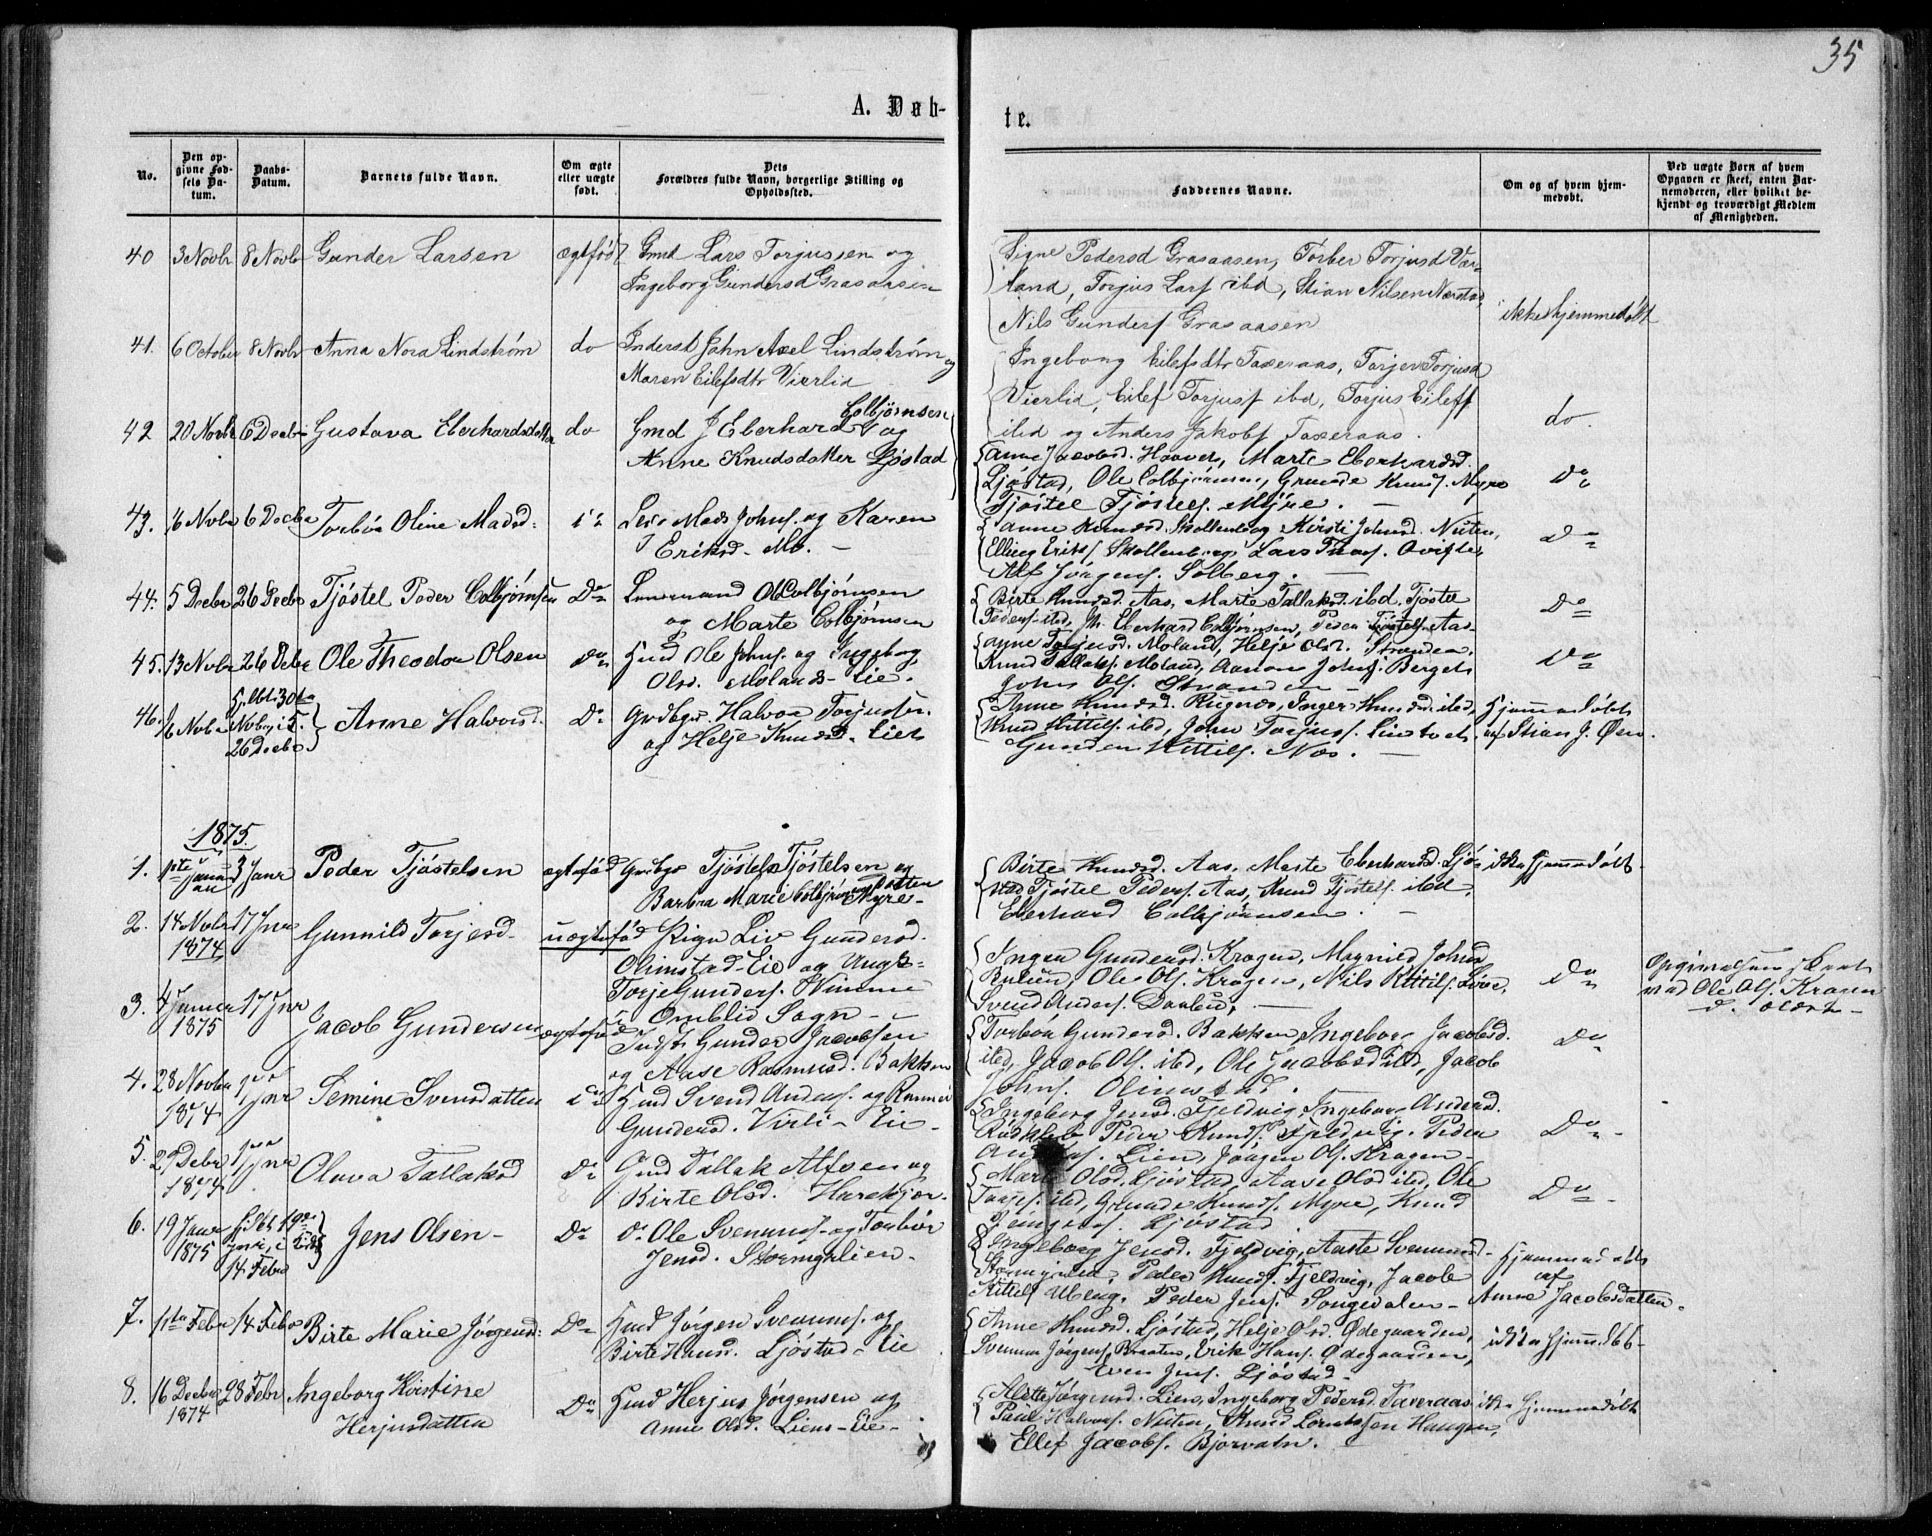 35
A. Døb-
te.
No.
Den op-
givne Fød-
sels Da-
tum.
Daabs-
Datum.
Barnets fulde Navn.
Om ægte
eller uægte
født.
Dets
Forældres fulde Navn, borgerlige Stilling og
Opholdssted.
Faddernes Navne.
Om og af hvem hjem-
medøbt.
Ved uægte Børn af hvem
Opgaven er skeet, enten Bar-
nemoderen, eller hvilket be-
kjendt og troværdigt Medlem
af Menigheden.
40 3 Novbr 8 Novbr Gunder Larsen ægtefød Gmd Lars Torjussen og
Ingeborg Gundersd Grasaasen
Signe Pedersd Grasaasen, Torber Torjusd Vær-
land, Torjus Lars ibd, Stian Nilsen Nærstad
Nils Gunders Grasaasen
ikke hjemmedøbt
41. 6 October 8 Novbr Anna Nora Lindstrøm do Inderst John Axel Lindstrøm og
Maren Eilefsdtr Vierlid
Ingeborg Eilefsdtr Taxeraas, Torjer Torjusd
Vierlid, Eilef Torjusf ibd, Torjus Eileff
ibd og Anders Jakobf Taxeraas.
do.
42 20 Novbr 6 Decbr Gustava Eberhardsdatter do Gmd J Eberhard Colbjørnsen og
Anne Knudsdatter Ljøstad
Anne Jacobsd. Hoover, Marte Eberhardsd.
Ljøstad, Ole Colbjørnsen, Grunde Knuds. Myre
Tjøstel Tjøstels. Myre. -
Do
43. 16 Novbr 6 Decbr Torbør Oline Madsd: Mads Johns. og Karen
Eriksd. Mo. -
Anne Knudsd. Skollenborg Kirsti Johnsd. Nuten,
Elling Eriks. Skollenborg, Lars
Alf Jørgens. Solberg. -
Do
44. 5 Decbr 26 Decbr Tjøstel Peder Colbjørnsen Do Ole Colbjørnsen
og Marte Colbjørnsen
Birte Knudsd. Aas, Marte Tallaksd. ibd. Tjøstel
Peders. ibd, Eberhard Colbjørnsen, Peder Tjøstels. Aas
Do
45. 13 Novbr 26 Decbr Ole Theodor Olsen Do Hmd Ole Johns. og Ingeborg
Olsd. Molands-Eie.
Anne Torjusd. Moland, Helje Olsd. Stranden
Knud Tallaks. Moland, Aanon Johns. Berget
John Ols. Stranden -
Do
46. 16 Novbr 30te
Novbr, i
26 Decbr Anne Halvorsd. Do Grdbgr. Halvor Torjusen.
og Helje Knudsd. Lien
Anne Knudsd. Rugenes, Inger Knudsd. ibd,
Knud Kittils. ibd, John Torjuss. Lindtveit.
Gunder Kittils. Næs. -
Hjemmedøbt
af Stian J. Øen.
1875.
1. 1ste Janu 3 Janr Peder Tjøstelsen ægtefød Grdbgr Tjøstel Tjøstelsen og
Barbra Marie Colbjørnsdatter Myre-
Birte Knudsd. Aas, Marte Eberhardsd. Ljø-
stad Tjøstel Peders. Aas, Knud Tjøstels. ibd.
Eberhard Colbjørnsen. -
ikke hjemmedøbt
2. 14 Novbr 1874 17 Jnr Gunnild Torjesd- uægtefød Pige Liv Gundersd.
Olimstad-Eie og Ungk-
Torje Gunders. Nimme
Omblid Sogn -
Inger Gundersd. Kragen, Magnild Johnsd
Ole Ols. Kragen, Nils Kittils.
Svend Anders. Dalen, -
Do
Opgivelsen skeet
ved Ole Ols. Kragen
d. ældre -
3. 4 Januar 1875 17 Jnr Jacob Gundersen ægtefød Indst Gunder Jacobsen
og Aase Rasmusd. Bakken
Torbør Gundersd. Bakken, Ingeborg Jacobsd.
ibd, Jacob Ols. ibd, Ole Jacobsd ibd, Jacob
Johns. Olimstad.
Do
4. 28 Novbr 1874 Jnr Semine Svensdatter Hmd Svend Anders. og Rannei
Gundersd. Virli- Eie -
Ingeborg Jensd. Fjeldvig, Ingeborg Andersd.
Rødkleb Peder Knuds. Fjeldvig. Peder
Anders. Lien, Jørgen Ols. Kragen-
Do -
5. 29 Debr 1874 Jnr Olava Tallaksd Do Gmd Tallak Alfsen og
Birte Olsd. Harekjør.
Marte Olsd. Ljøstad, Aase Olsd ibd, Ole
Torjes. ibd, Grunde Knuds. Myre, Knud
Ljøstad
Do -
6. 19 Janr 1875 19de Jnr, i
14 Febr Jens Olsen- Do do Ole Svennums. og Torbør
Jensd. Stormyhlien-
Ingeborg Jensd. Fjeldvig, Aaste Svennumsd-
Stormyrlid, Peder Knuds. Fjeldvig, Jacob
Kittels Uberg, Peder Jens. Songedalen-
Hjemmedøbt
af
Anne Jacobsdatter-
7. 1ste Febr 14 Febr Birte Marie Jørgensd: Do Hmd Jørgen Svennums. og
Birte Knusd. Ljøstad-Eie
Anne Knudsd. Ljøstad, Helje Olsd. Ødegaarden,
Svennum Jørgens. Braaten, Erik Hans. Ødegaarden,
Even Jens. Ljøstad-
ikke hjemmedøbt-
8. 16 Decbr 1874 28 Febr Ingeborg Kirstine
Herjusdatter Do Hmd Herjus Jørgensen og
Anne Olsd. Liens-Eie-
Alette Jørgensd. Lien, Ingeborg Pedersd. Taxeraas
Paul Halvors. Nuten, Knud Lorentssen Haugen,
Ellef Jacobs. Bjorvatn. -
ikke hjemmedøbt